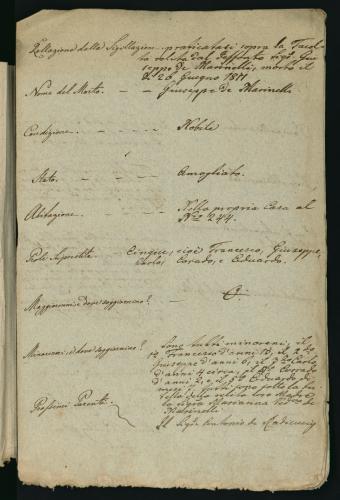 Rellazione delle Sigillazioni praticatasi sopra la Facol-
tà relita dal deffonto Sigr. Giu-
seppe De Marinelli, morto il
26 Giugno 1811
Nome del Morto. - - Giuseppe De Marinelli
Condizione. - - - Nobile
Stato. - - - Amogliato.
Abitazione. - - - Nella propria Casa al
Nro 244.
Prole Superstite. - Cinque, cioè Francesco, Giuseppe,
Carlo, Corado, e Eduardo.
Maggiorenni e dove soggiornino? - 0.
Minorenni, e dove soggiornino? Sono tutti minorenni, il
1º Francesco d'anni 13, il 2do
Giuseppe d'anni 6, il 3º Carlo
d'anni 4 circa, il 4º Corrado
d'anni 2, e il 5º Eduardo di
mesi
sotto la tu-
tella della relita loro Madre
la Sigra Marianna De
Marinelli
Prossimi Parenti. Il Sigr Antonio de